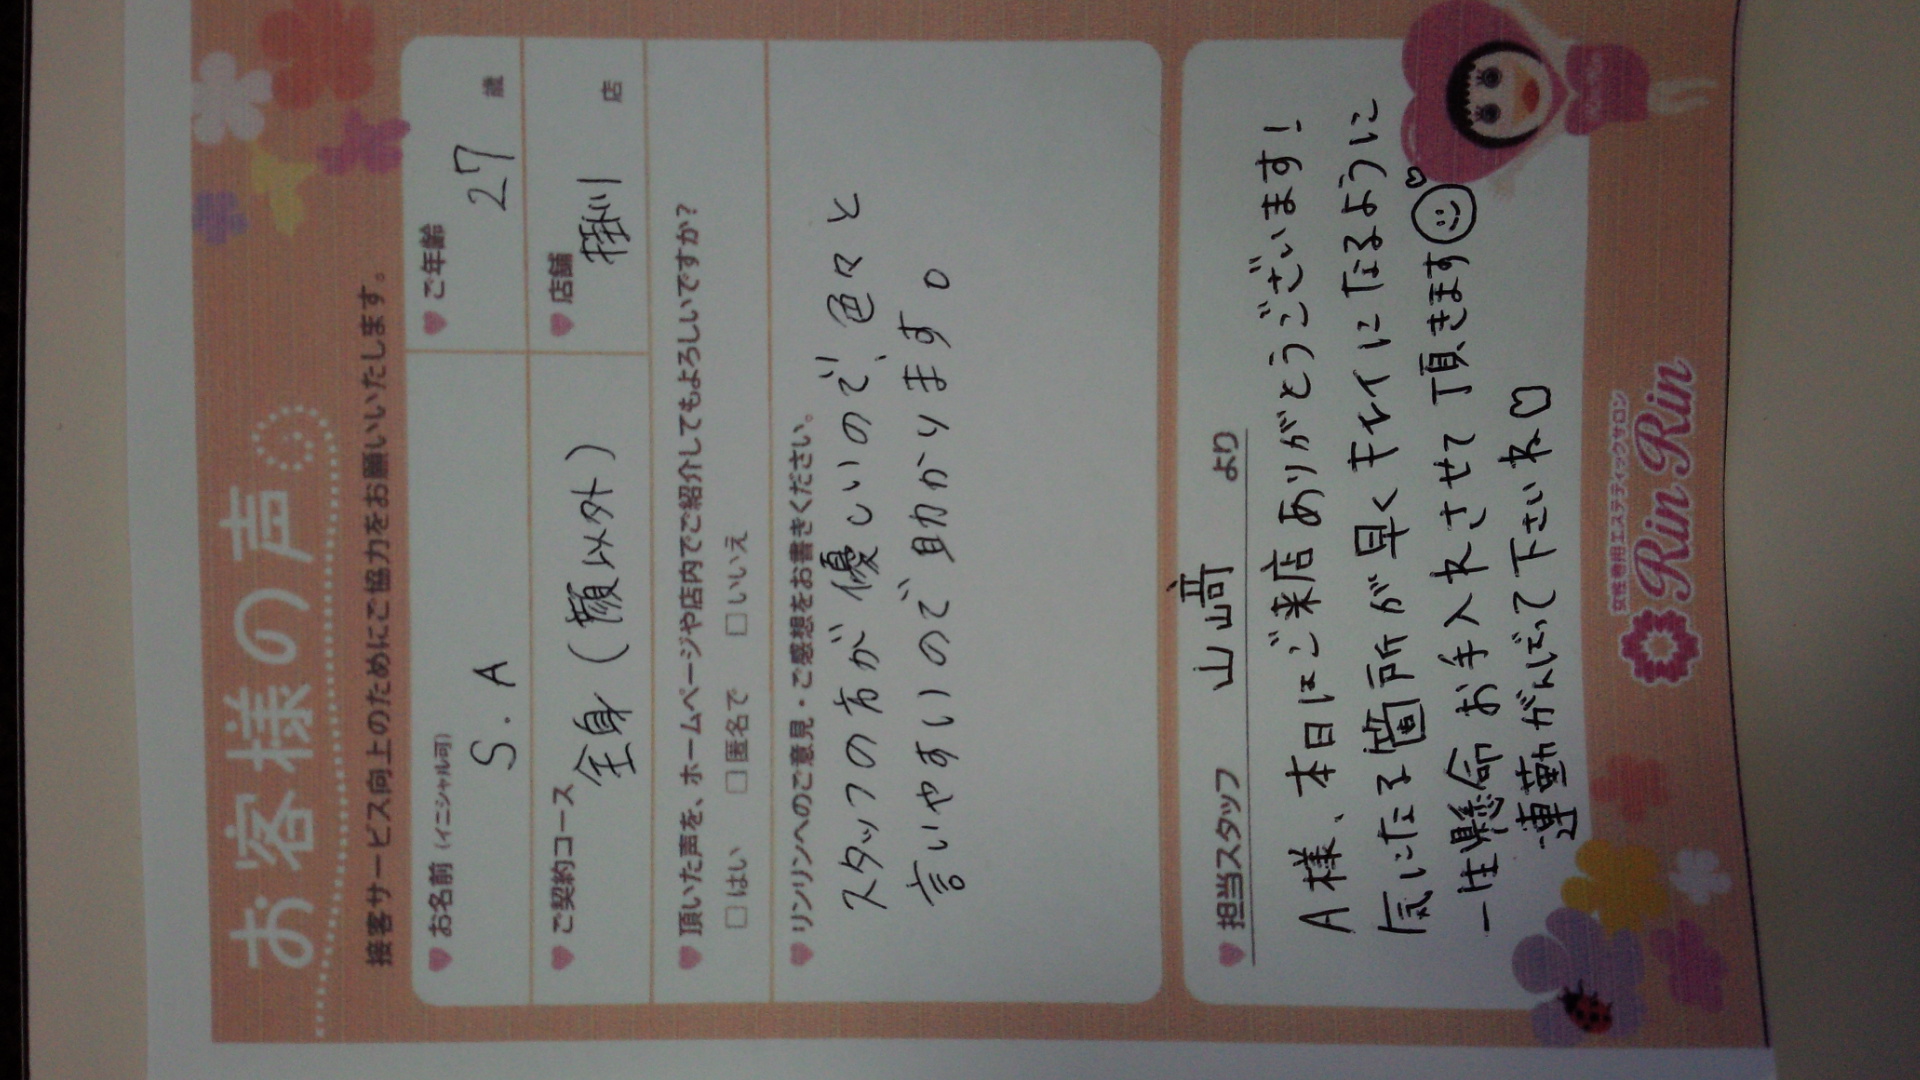 お客様の声
接客サービス向上のためにご協力をお願いいたします。
お名前(イニシャル可)
S.A
ご年齢
27 歳
ご契約コース
全身(顔以外)
店舗
掛川 店
頂いた声を、ホームページや店内でご紹介してもよろしいですか?
□はい □匿名で □いいえ
リンリンへのご意見・ご感想をお書きください。
スタッフの方が優しいので、色々と
言いやすいので助かります。
担当スタッフ 山﨑 より
A様、本日はご来店ありがとうございます!
気にたる箇所が早くキレイになるように
一生懸命お手入れさせて頂きます
連勤がんばって下さいね♡
女性専用エステティックサロン
Rin Rin